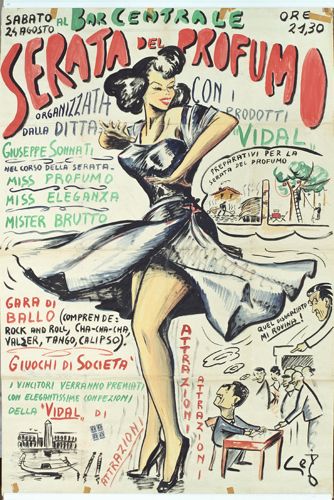 SABATO
24 AGOSTO
AL BAR CENTRALE
ORE
21,30
SERATA DEL PROFUMO
ORGANIZZATA
DALLA DITTA
CON I
PRODOTTI
"VIDAL"
GIUSEPPE SONNATI
NEL CORSO DELLA SERATA:
MISS PROFUMO
MISS ELEGANZA
MISTER BRUTTO
PREPARATIVI PER LA
SERATA DEL PROFUMO
GARA DI
BALLO (COMPRENDE:
ROCK AND ROLL, CHA-CHA-CHA,
VALZER, TANGO, CALIPSO).
GIUOCHI DI SOCIETÀ
I VINCITORI VERRANNO PREMIATI
CON ELEGANTISSIME CONFEZIONI
DELLA "VIDAL" DI
ATTRAZIONI
ATTRAZIONI
ATTRAZIONI
QUEL DISGRAZIATO
MI ROVINA!